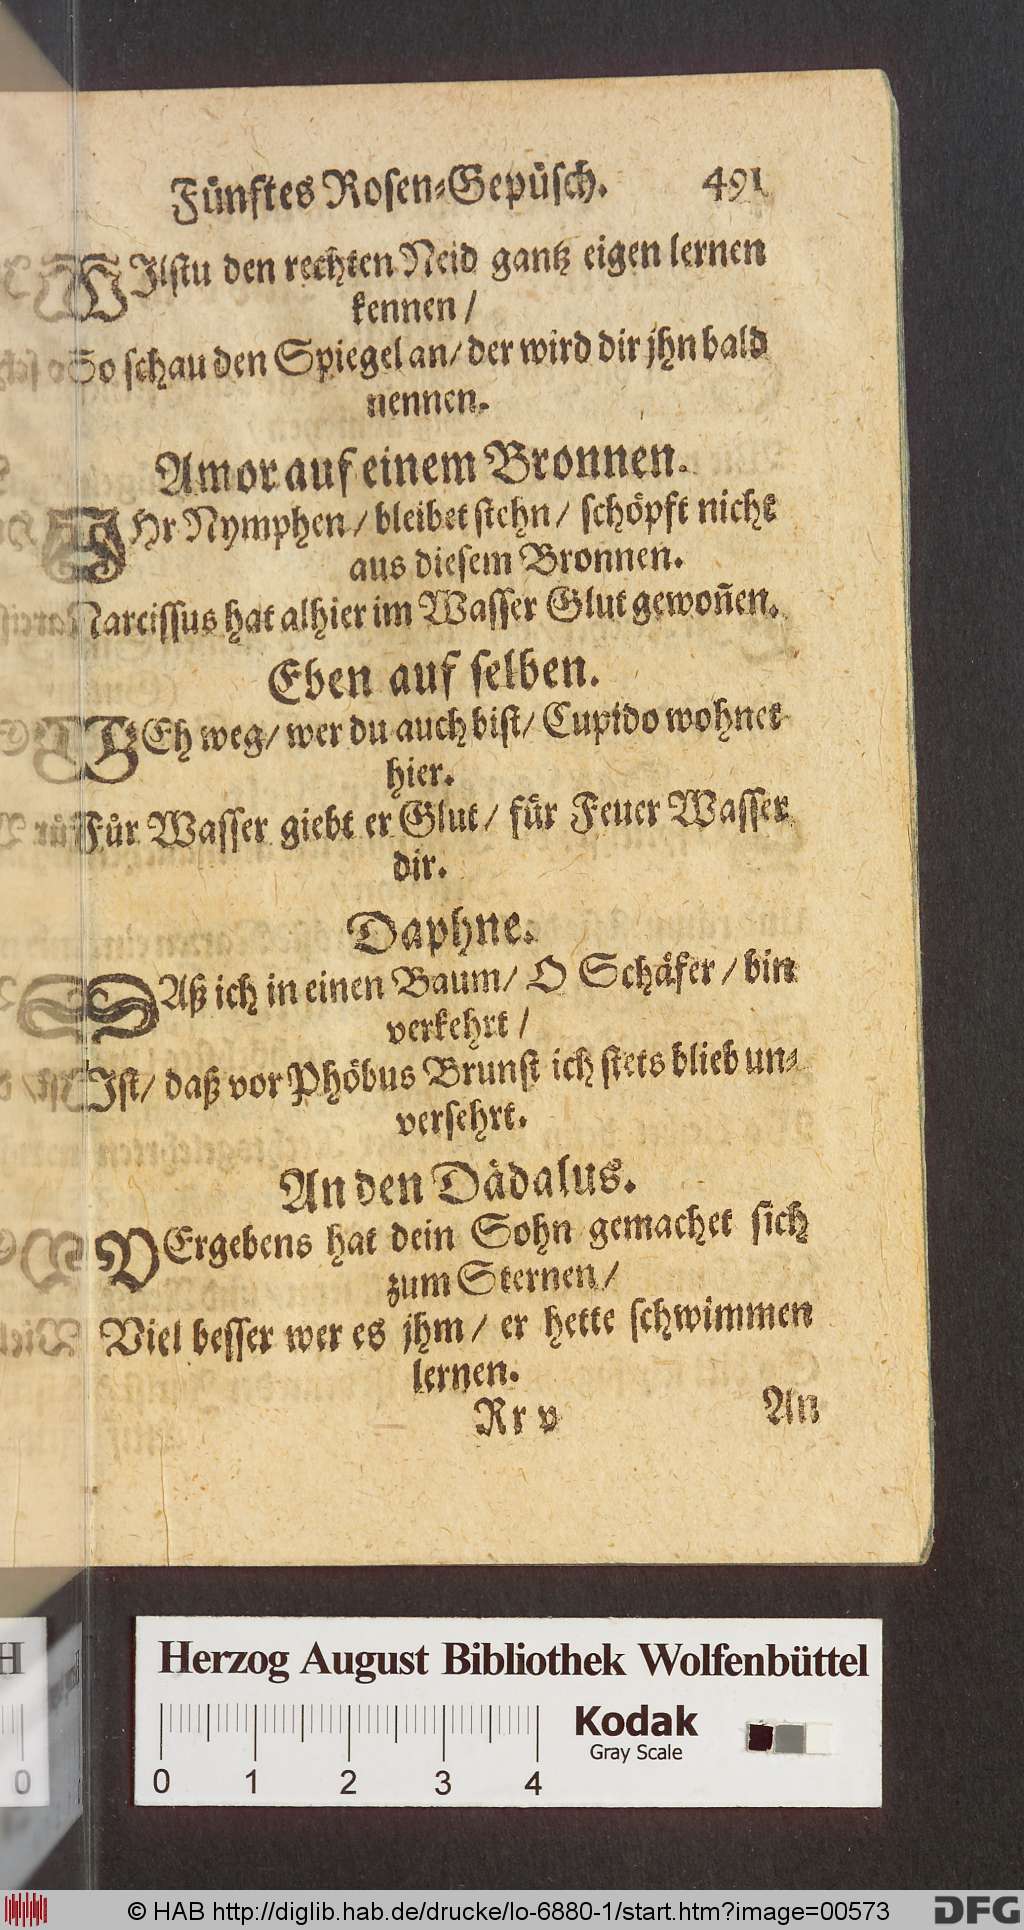 Fünftes Rosen-Gepüsch. 491
WIlstu den rechten Neid gantz eigen lernen
kennen /
So schau den Spiegel an/ der wird dir jhn bald
nennen.
Amor auf einem Bronnen.
IHr Nymphen / bleibet stehn / schöpft nicht
aus diesem Bronnen.
Narcissus hat alhier im Wasser Glut gewoñen.
Eben auf selben.
GEh weg/ wer du auch bist/ Cupido wohnet
hier.
Für Wasser giebt er Glut / für Feuer Wasser
dir.
Daphne.
DAß ich in einen Baum/ O Schäfer / bin
verkehrt /
Ist/ daß vor Phöbus Brunst ich stets blieb un-
versehrt.
An den Dädalus.
VErgebens hat dein Sohn gemachet sich
zum Sternen /
Viel besser wer es jhm / er hette schwimmen
lernen.
Rr v An
Herzog August Bibliothek Wolfenbüttel
Kodak
Gray Scale
0 1 2 3 4
© HAB http://diglib.hab.de/drucke/lo-6880-1/start.htm?image=00573
DFG